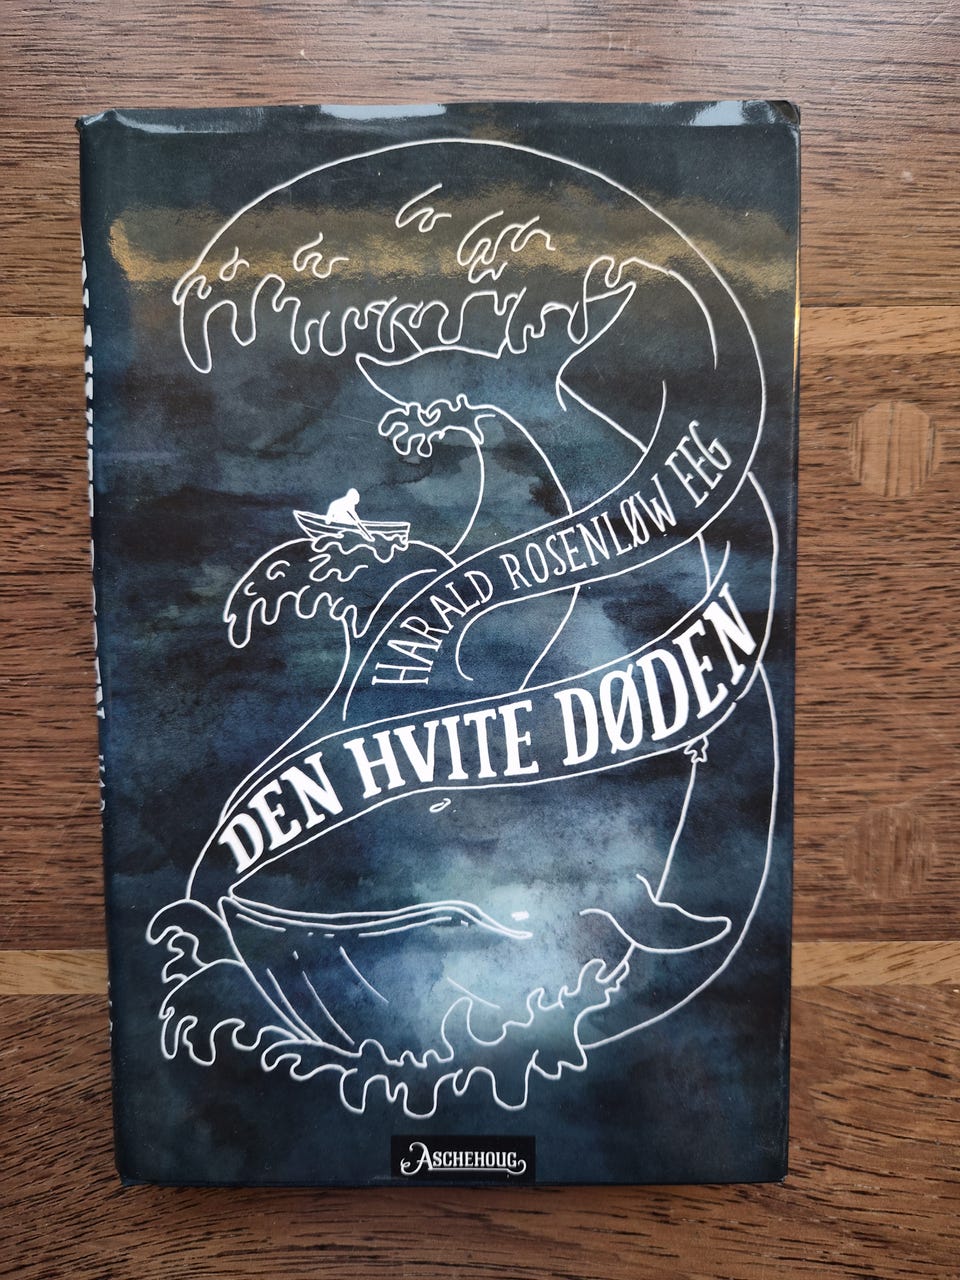 HARALD ROSENLØW EEG
DEN HVITE DØDEN
ASCHEHOUG